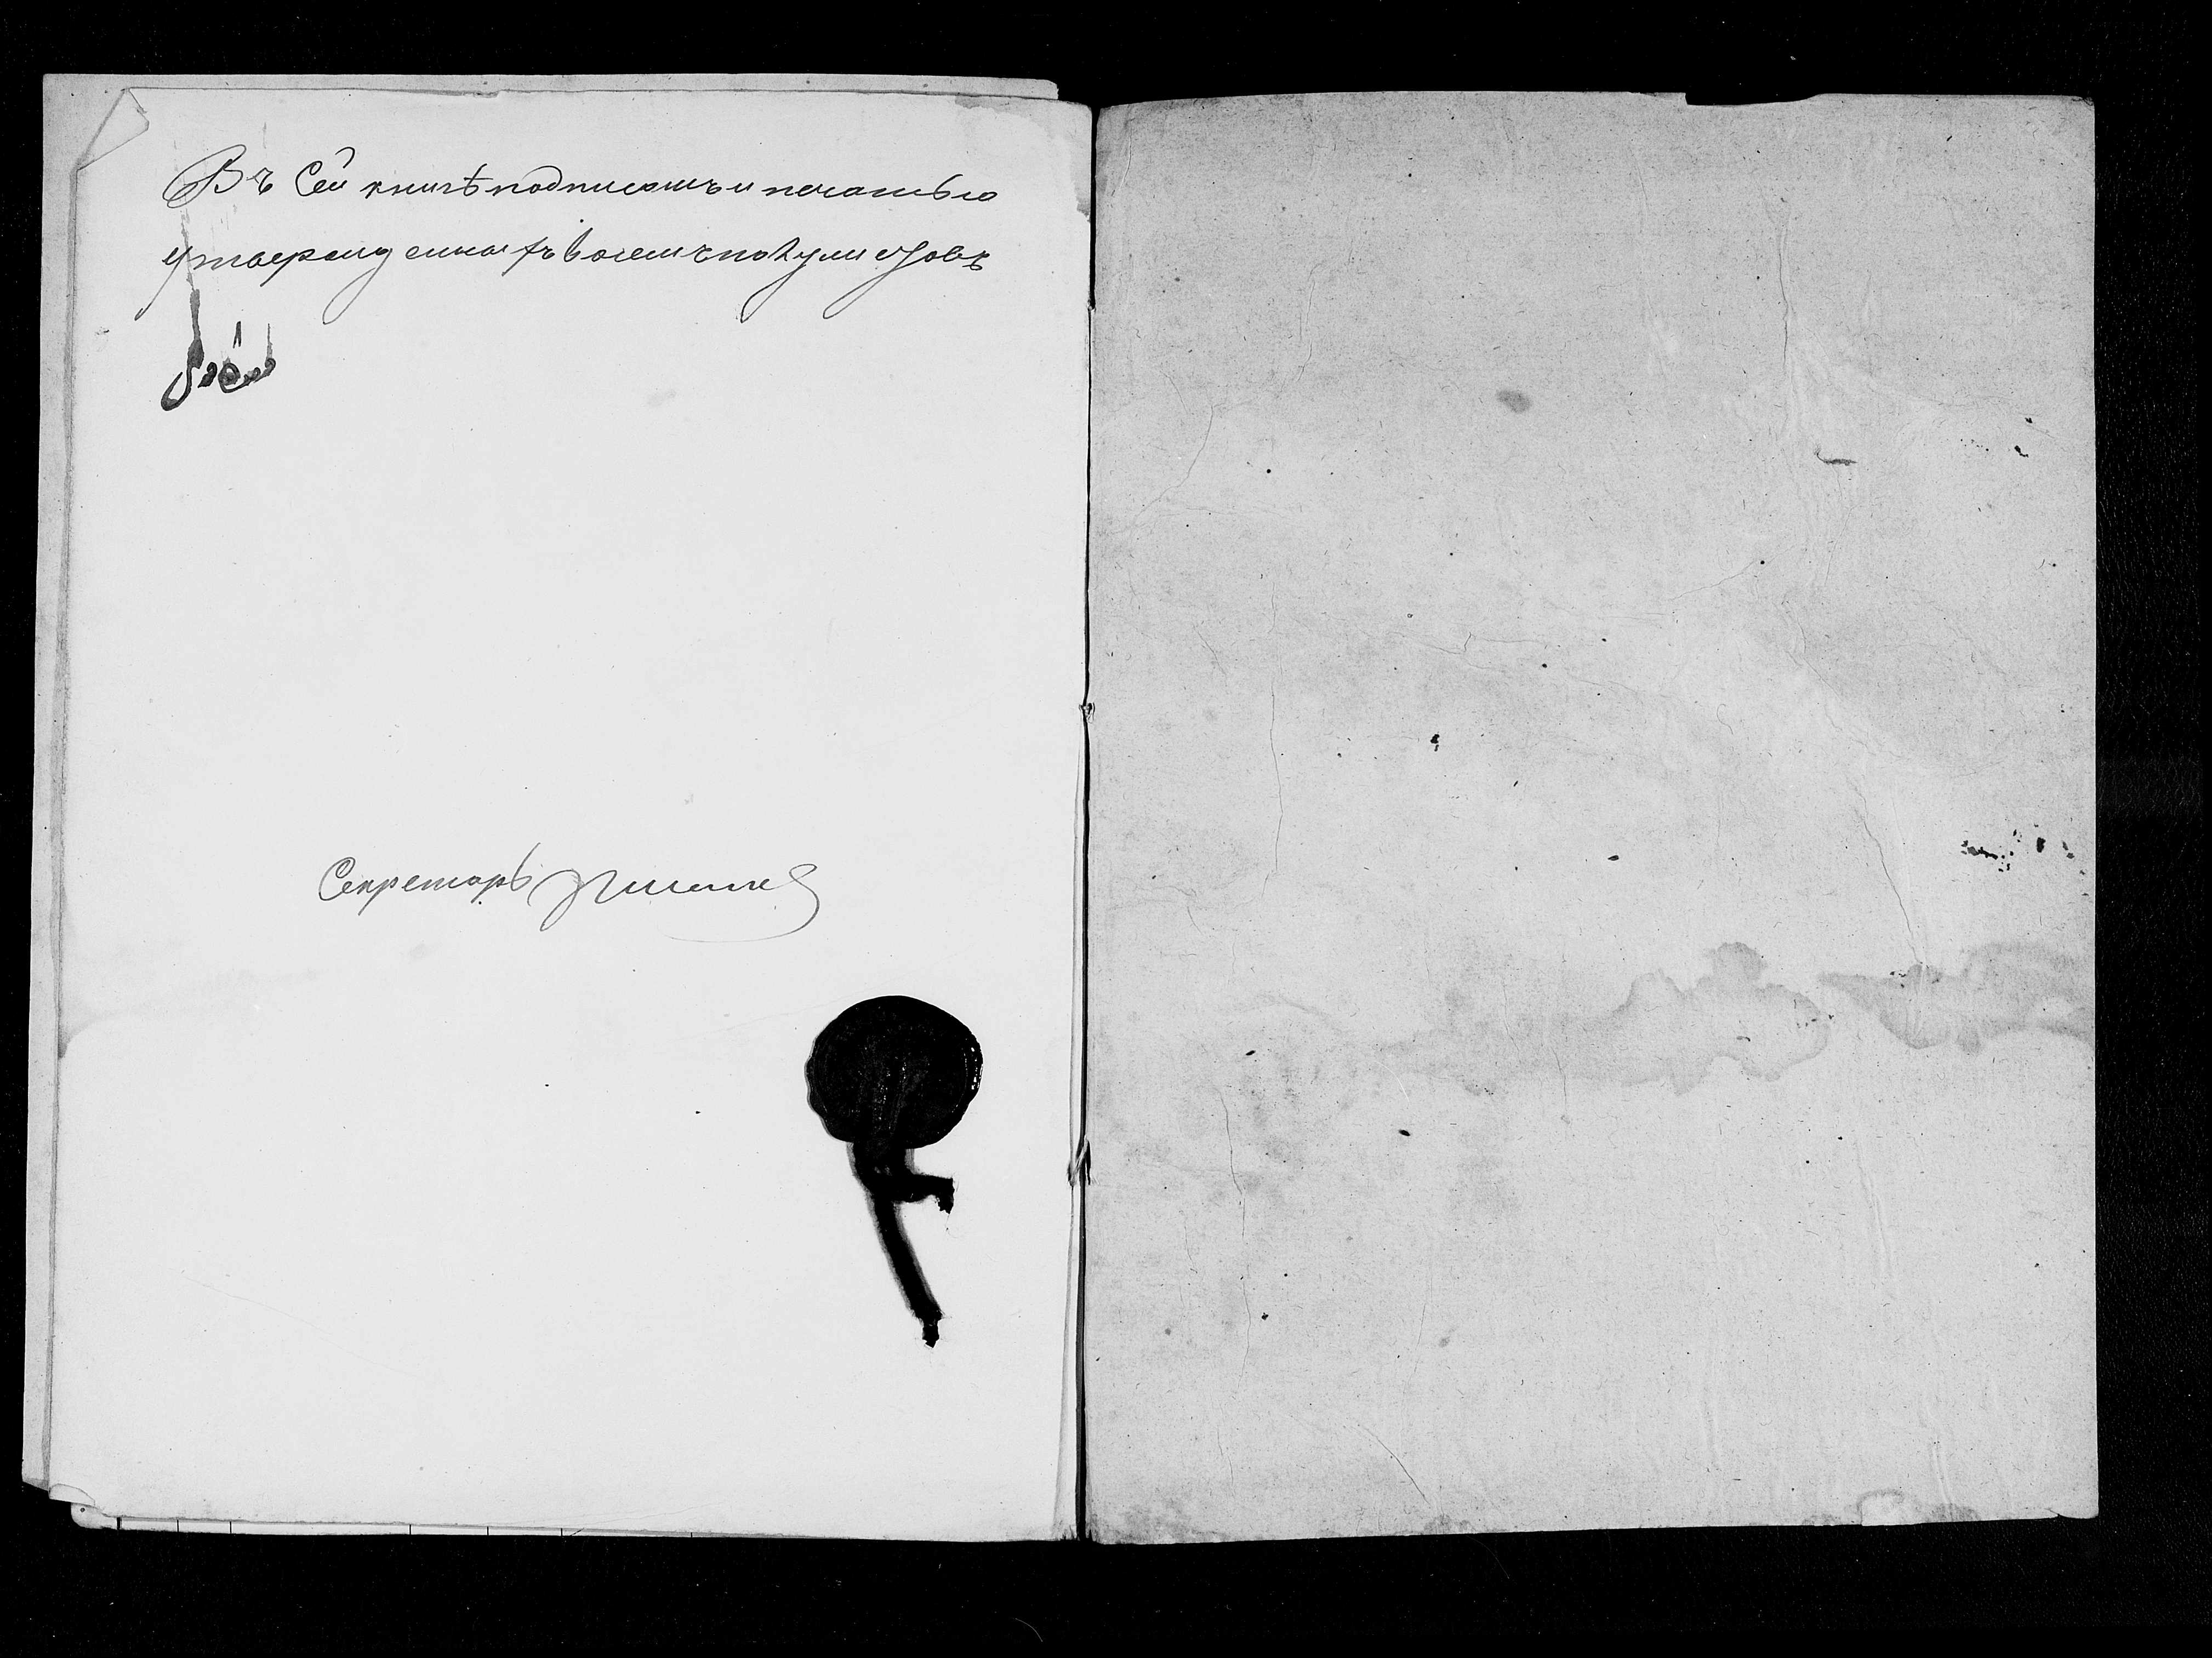 Въ сей книгѣ подписомъ и печатью
утвержденныхъ восемъ полулистовъ
Секретарь